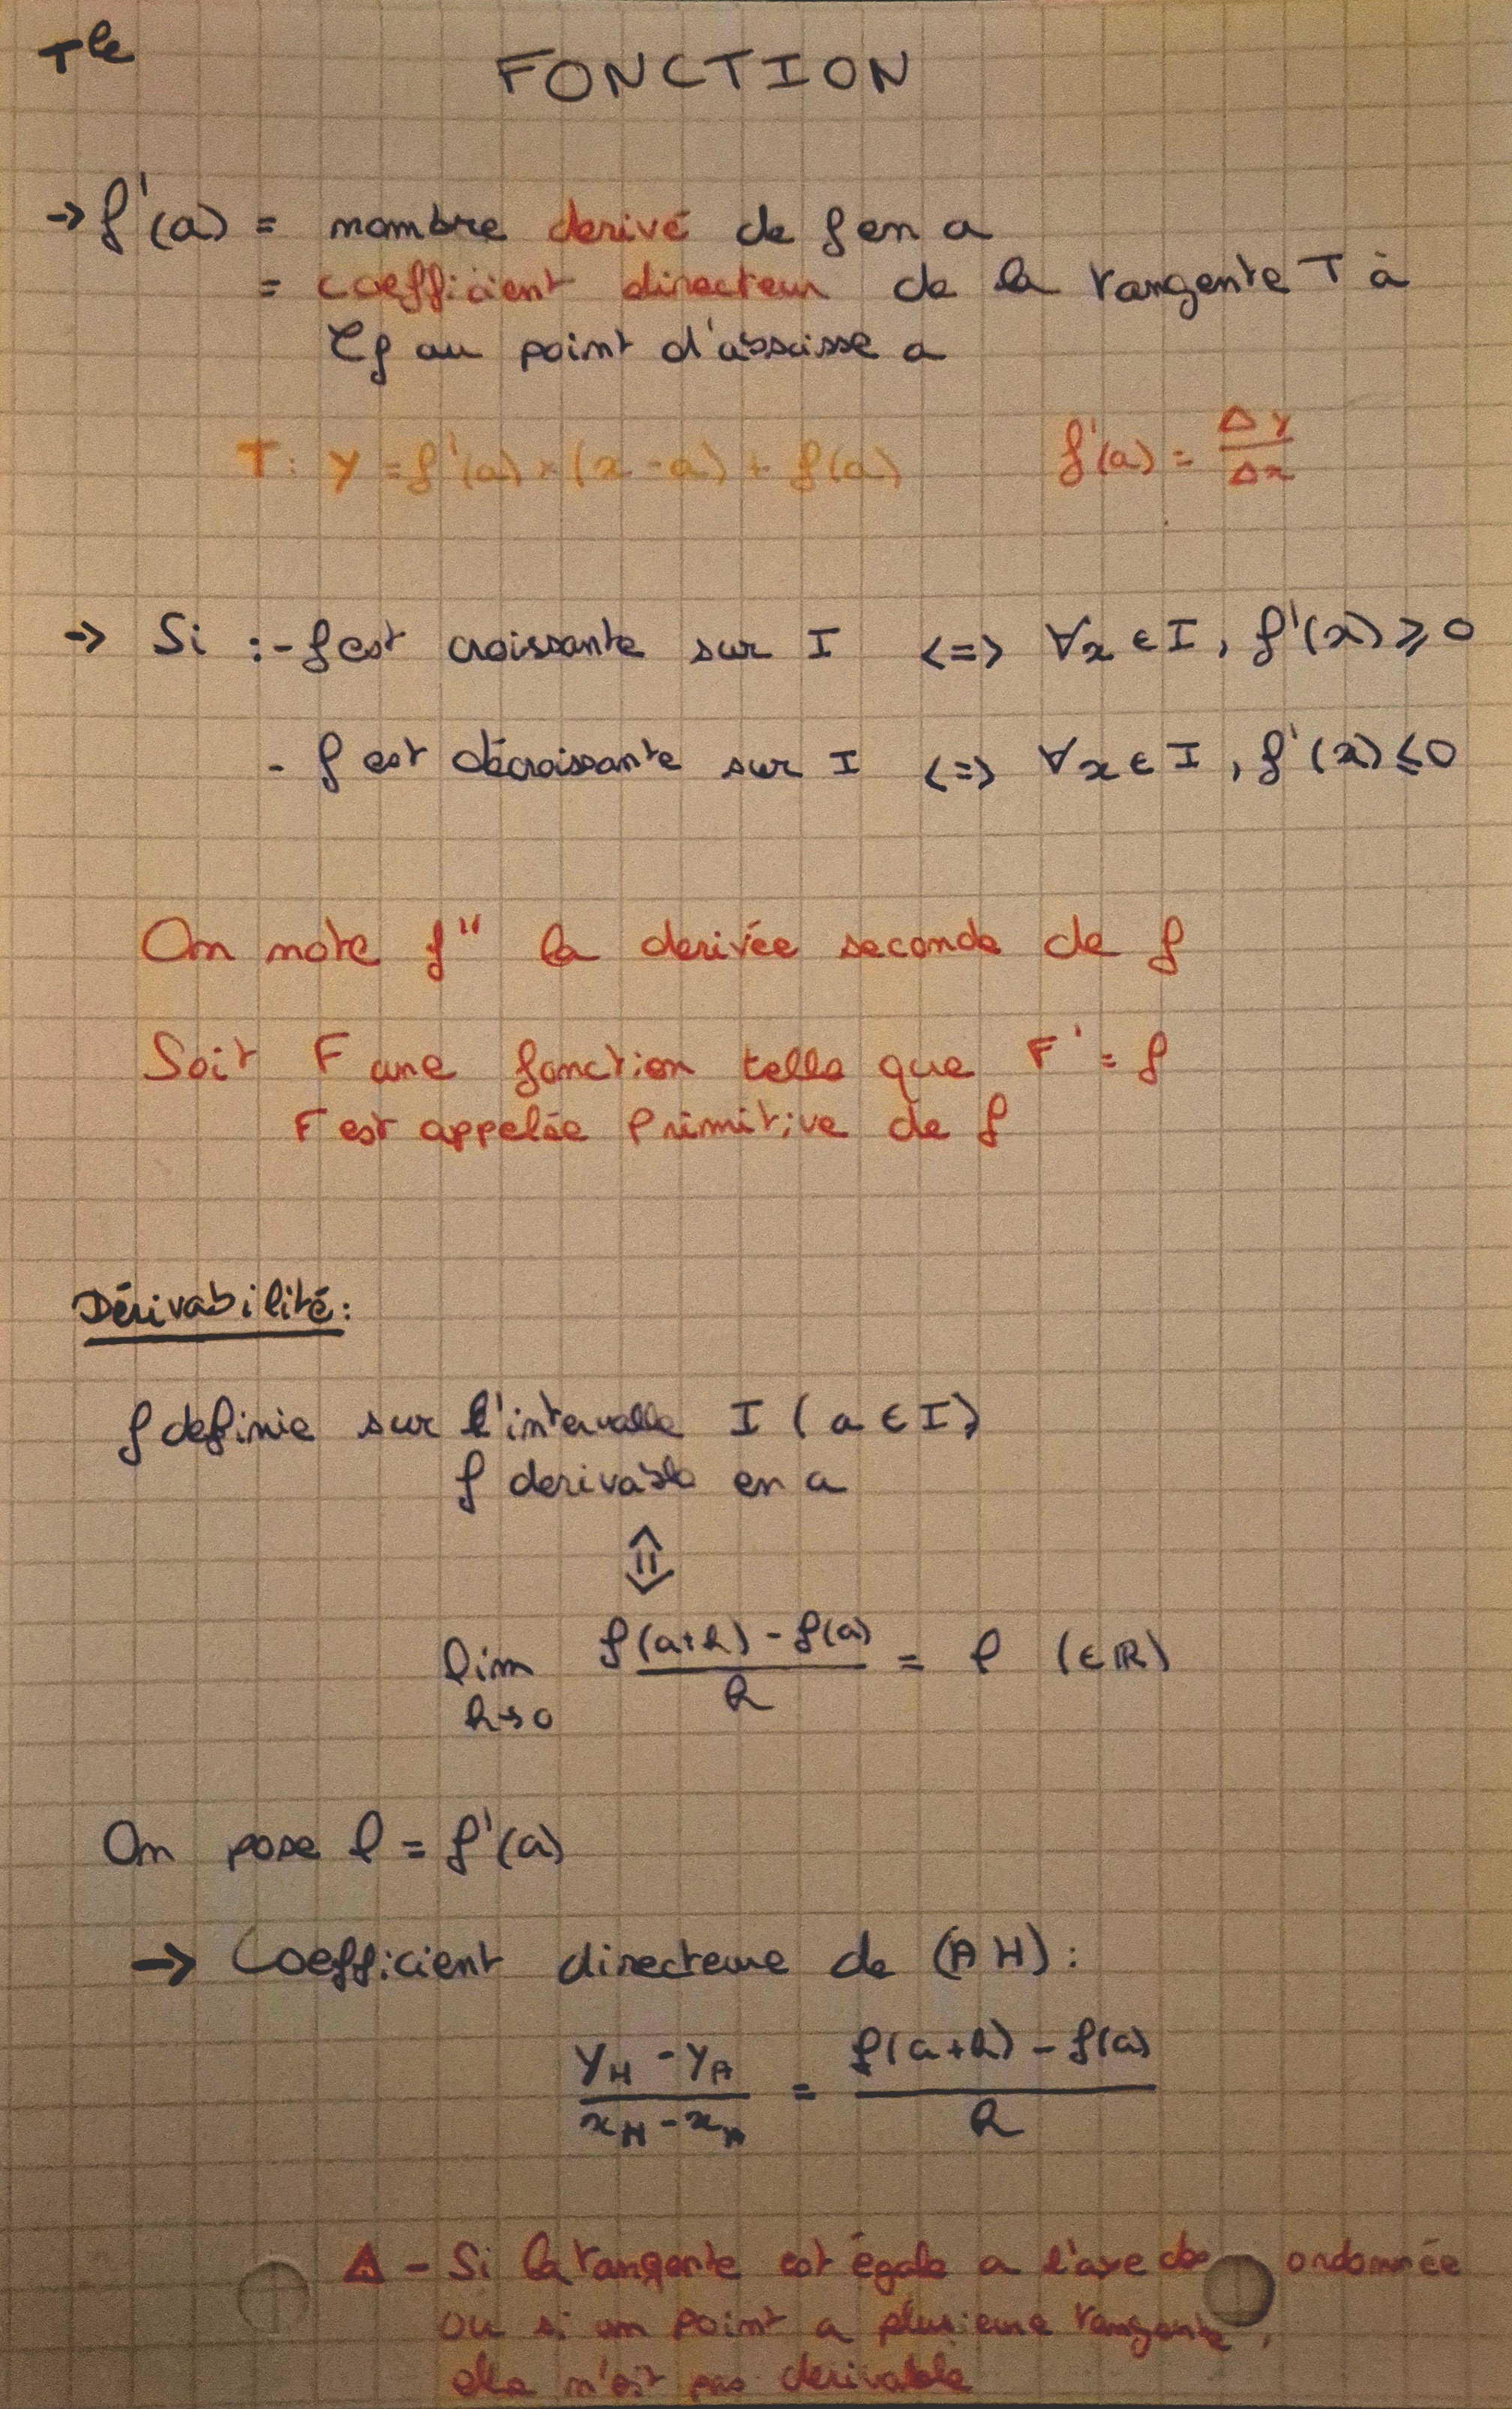 Tle
FONCTION
→ f'(a) = nombre derivé de f en a
= coefficient directeur de la tangente T à
Cf au point d'abscisse a
T: y = f'(a) × (x - a) + f(a)    f'(a) = Δy/Δx
→ Si : - f est croissante sur I <=> ∀x ∈ I, f'(x) ⩾ 0
- f est décroissante sur I <=> ∀x ∈ I, f'(x) ⩽ 0
On note f'' la derivée seconde de f
Soit F une fonction telle que F' = f
F est appelée Primitive de f
Dérivabilité:
f definie sur l'intervalle I (a ∈ I)
f derivable en a
⇕
lim h→0 (f(a+h) - f(a))/h = l (∈ ℝ)
On pose l = f'(a)
→ Coefficient directeure de (AH):
(yH - yA)/(xH - xA) = (f(a+h) - f(a))/h
⚠ - Si la tangente est égale a l'axe des ordonnée
ou si un point a plusieurs tangente,
elle n'est pas derivable